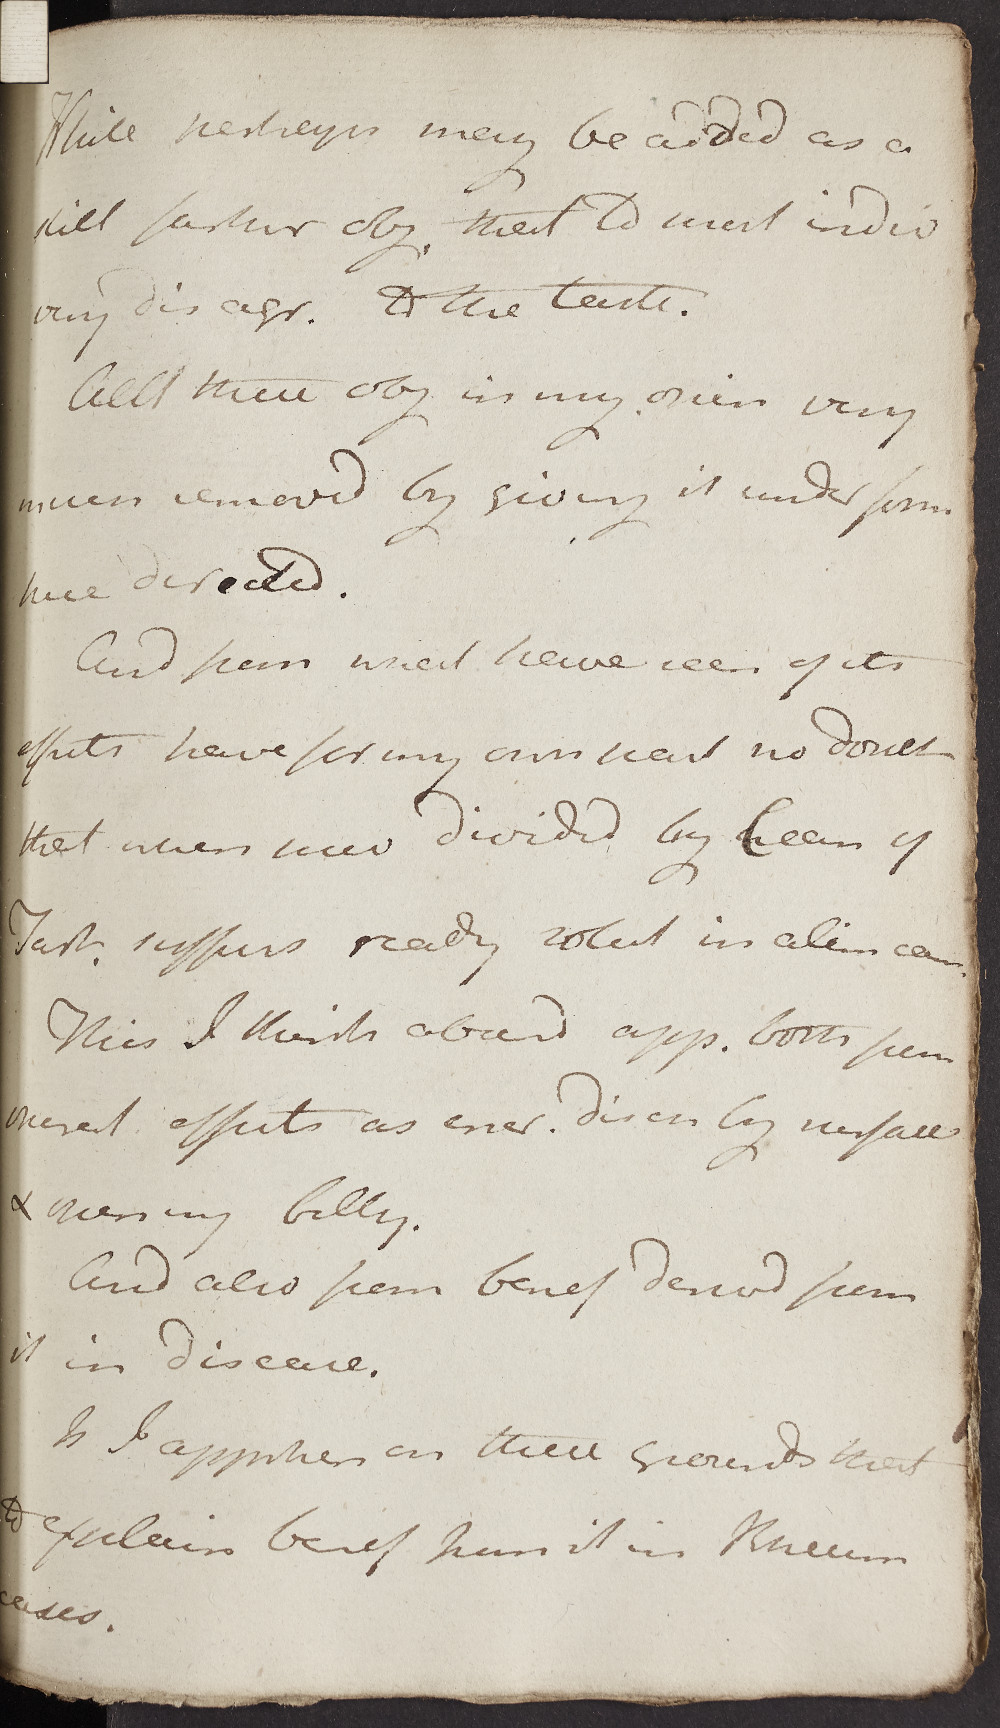 While perhaps may be added as a
still further obj. that to most indiv
very disagr. to the taste.
All these obj in my opin very
much removed by giving it under form
here directed.
And from what have seen of its
effects have for my own part no doubt
that when prev divided by Cream of
Tart. suffers ready solut in alim can.
This I think abund app. both from
general effects as ener. diseu by
& opening belly.
And also from benef derivd from
it in disease.
Is I apprehen on these grounds that
to explain benef from it in Rheum
cases.